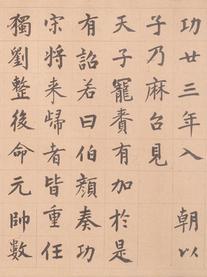 功廿三年入　朝以
子乃麻台見
天子寵賚有加於是
有詔若曰伯顏奏功
宋将来歸者皆重任
獨劉整後命元帥數